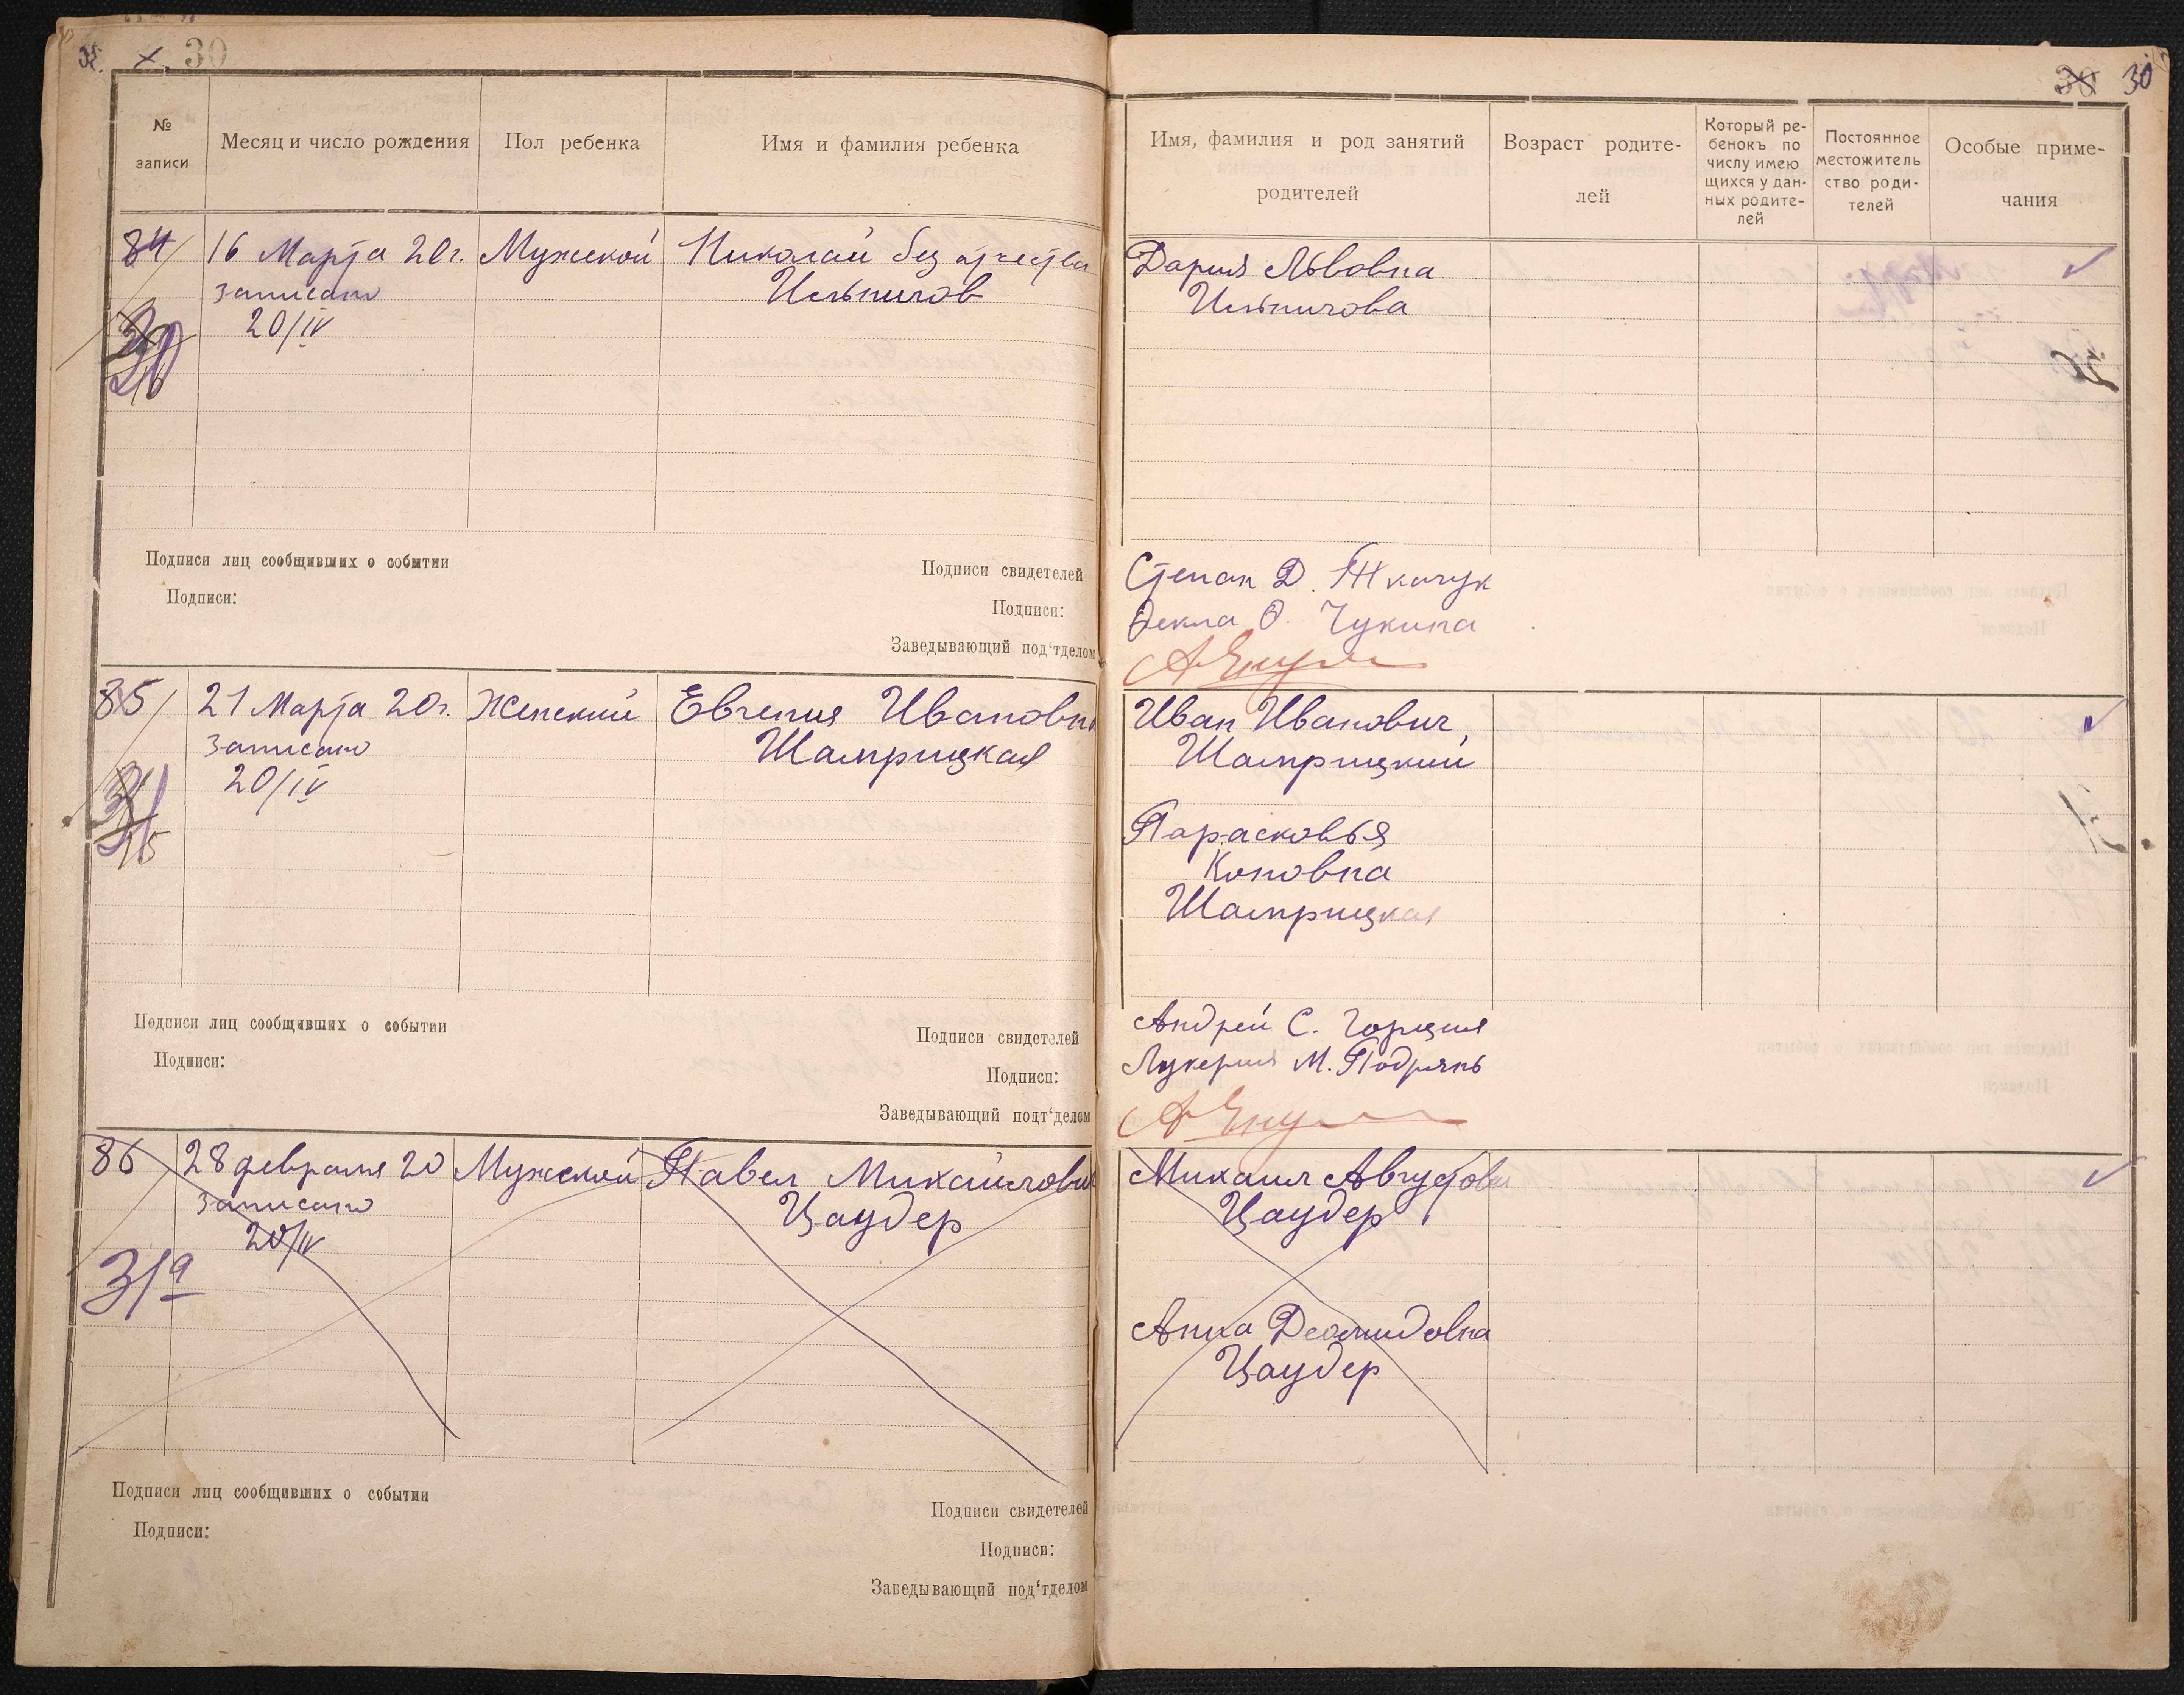 30
30 30
№ записи
Месяц и число рождения
Пол ребенка
Имя и фамилия ребенка
Имя, фамилия и род занятий родителей
Возраст родите-
лей
Который ре-
бенокъ по
числу имею
щихся у дан-
ных родите-
лей
Постоянное
местожитель
ство роди-
телей
Особые приме-
чания
84
16 Марта 20г.
записано
20/IV
Мужской
Николай без отчества
Дария Львовна
30
Подписи лиц сообщивших о событии
Подписи:
Подписи свидетелей
Подписи:
Заведывающий под‘тделом
Степан Д. Ткачук
Фекла Ф. Чукина
85
21 Марта 20г.
записано
20/IV
Женский
Евгения Ивановна
Шамрицкая
Иван Иванович
Шамрицкий
Парасковья
Коновна
Шамрицкая
31
15
Подписи лиц сообщивших о событии
Подписи:
Подписи свидетелей
Подписи:
Заведывающий подт‘делом
Андрей С.
Лукерия М.
86
28 февраля 20
записано
20/IV
Мужской
Павел Михайлович
Цаудер
Михаил Августович
Цаудер
Анна Деомидовна
Цаудер
31а
Подписи лиц сообщивших о событии
Подписи:
Подписи свидетелей
Подписи:
Заведывающий под‘тделом